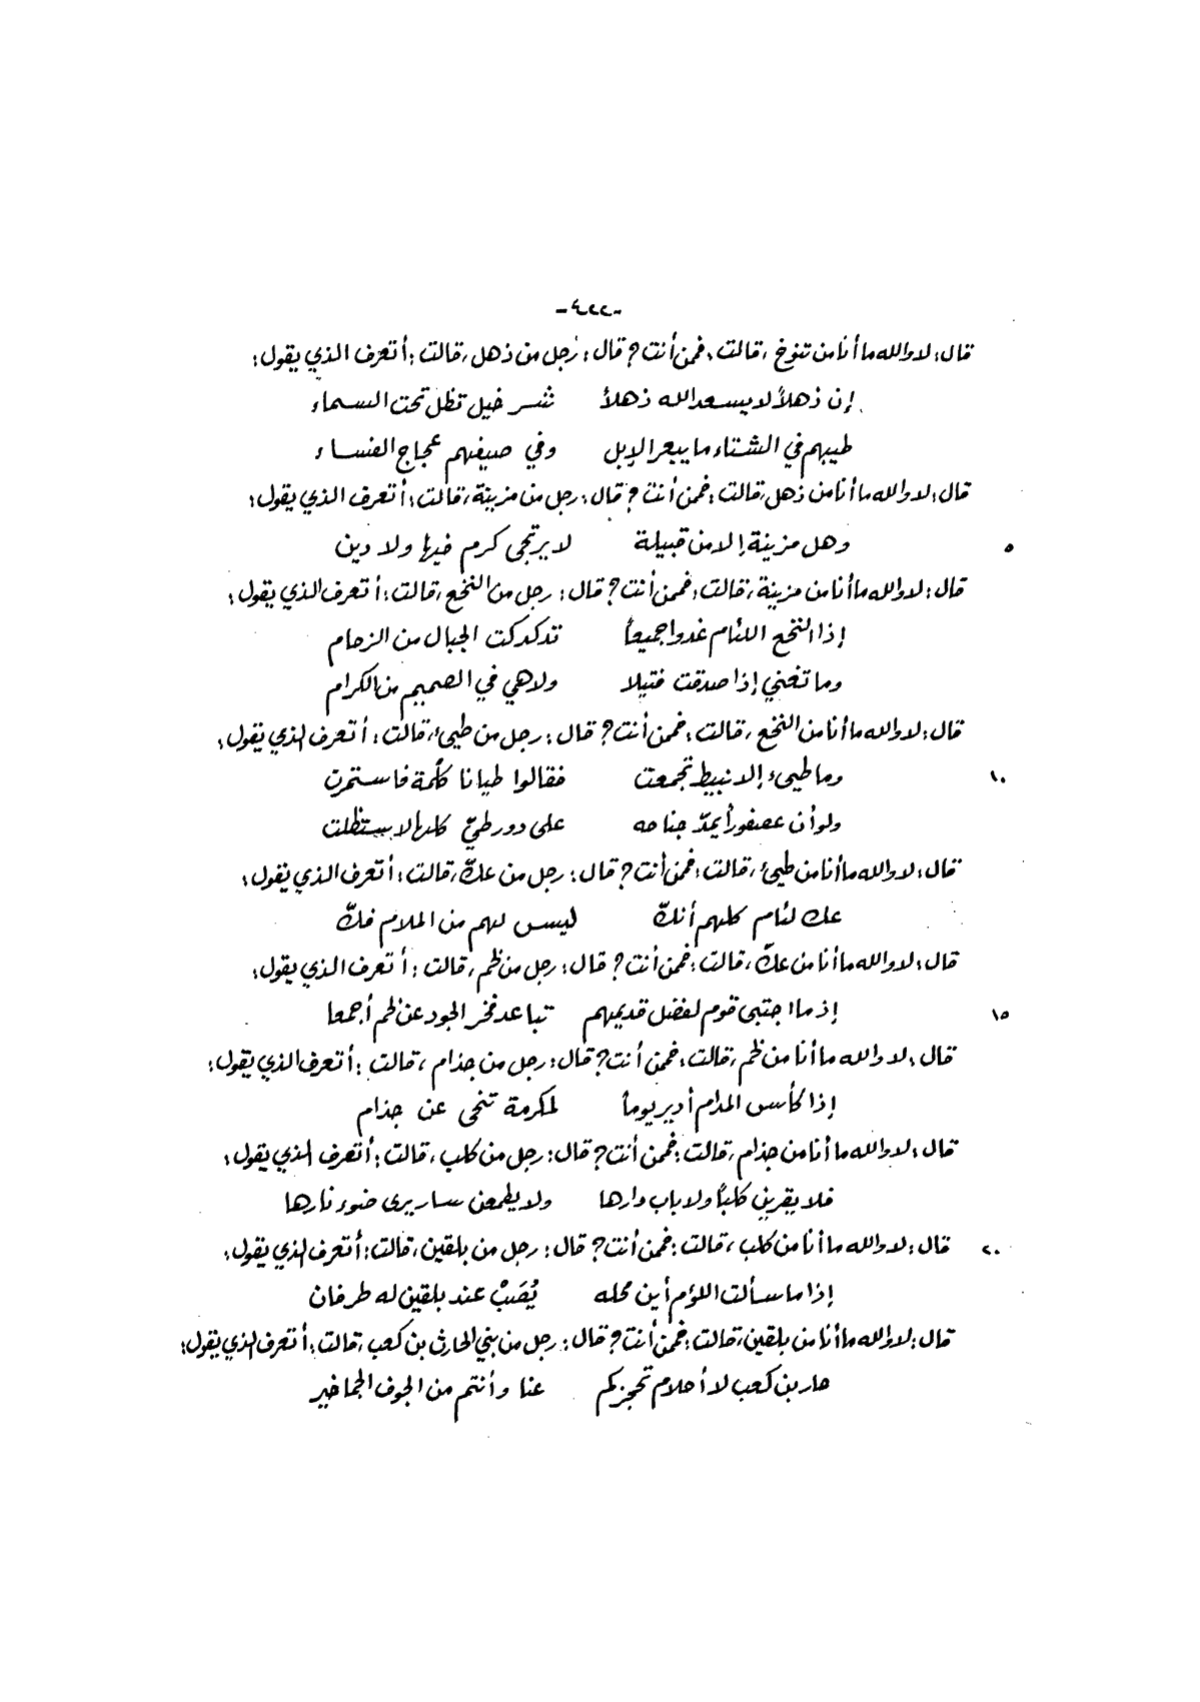 -٤٢٢-
قال: لا والله ما أنا من تنوخ، قالت: فمن أنت؟ قال: رجل من ذهل، قالت: أتعرف الذي يقول:
إن ذهلاً لا يسعد الله ذهلاً    شر خيل تظل تحت السماء
طيبهم في الشتاء ما يبعر الإبل    وفي صيفهم عجاج الفساء
قال: لا والله ما أنا من ذهل، قالت: فمن أنت؟ قال: رجل من مزينة، قالت: أتعرف الذي يقول:
وهل مزينة إلا من قبيلة    لا يرتجى كرم فيها ولا دين    ٥
قال: لا والله ما أنا من مزينة، قالت: فممن أنت؟ قال: رجل من النخع، قالت: أتعرف الذي يقول:
إذا النخع اللئام غدوا جميعاً    تدكدكت الجبال من الزحام
وما تغني إذا صدقت فتيلا    ولا هي في الصميم من الكرام
قال: لا والله ما أنا من النخع، قالت: فمن أنت؟ قال: رجل من طيئ، قالت: أتعرف الذي يقول:
وما طيىء إلا نبيط تجمعت    فقالوا طيانا كلمة فاستمرت    ١٠
ولو أن عصفوراً يمدّ جناحه    على دور طيّ كلها لاستظلت
قال: لا والله ما أنا من طيئ، قالت: فمن أنت؟ قال: رجل من عكّ، قالت: أتعرف الذي يقول:
عك لئام كلهم أنكّ    ليس لهم من الملام فكّ
قال: لا والله ما أنا من عكّ، قالت: فمن أنت؟ قال: رجل من لخم، قالت: أتعرف الذي يقول:
إذ ما اجتبى قوم لفضل قديمهم    تباعد فخر الجود عن لخم أجمعا    ١٥
قال: لا والله ما أنا من لخم، قالت: فمن أنت؟ قال: رجل من جذام، قالت: أتعرف الذي يقول:
إذا كأس المدام أدير يوماً    لمكرمة تنحى عن جذام
قال: لا والله ما أنا من جذام، قالت: فمن أنت؟ قال: رجل من كلب، قالت: أتعرف الذي يقول:
فلا يقربن كلباً ولا باب دارها    ولا يطمعن سار يرى ضوء نارها
قال: لا والله ما أنا من كلب، قالت: فمن أنت؟ قال: رجل من بلقين، قالت: أتعرف الذي يقول:    ٢٠
إذا ما سألت اللؤم أين محله    يُصَبْ عند بلقين له طرفان
قال: لا والله ما أنا من بلقين، قالت: فمن أنت؟ قال: رجل من بني الحارث بن كعب، قالت: أتعرف الذي يقول:
حار بن كعب لا أحلام تحجزكم    عنا وأنتم من الجوف الجماخير